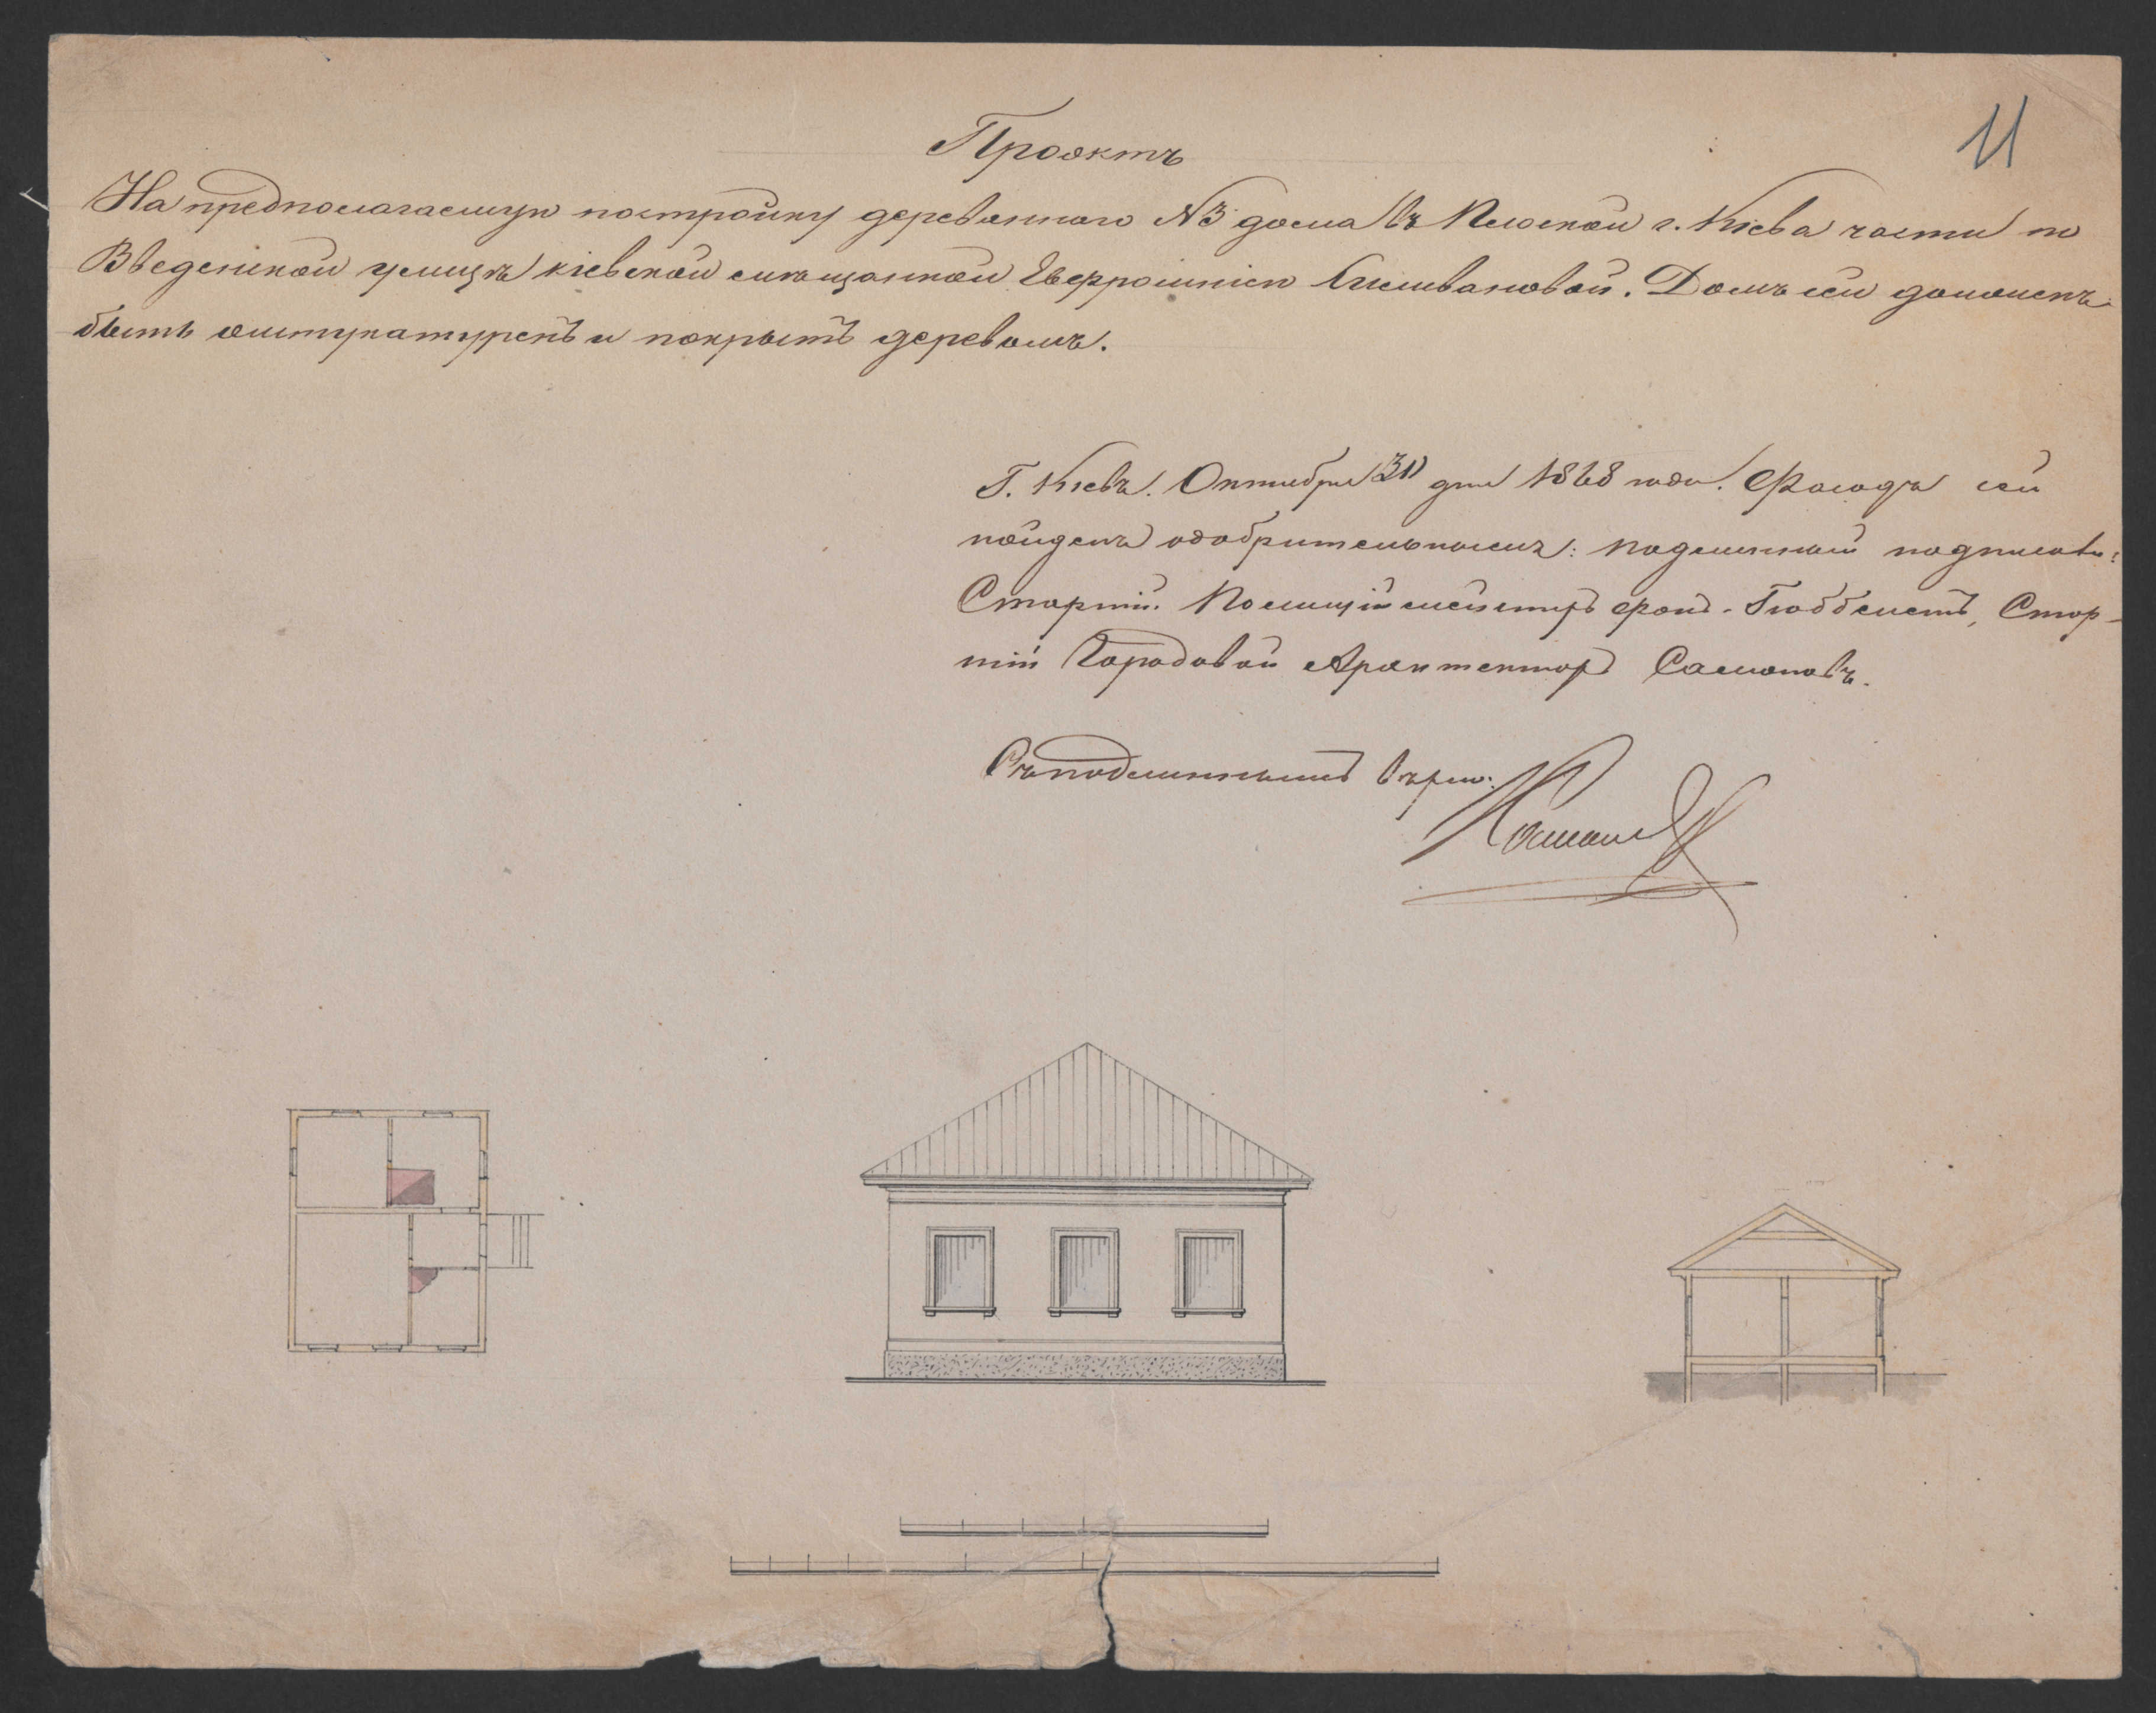 Проэктъ
11
На предполагаемую постройку деревяннаго №3 дома въ Плоской г. Кіева части по
Введенской улицѣ кіевской мѣщанкой Евфросиніею. Домъ сей долженъ
быть оштукатуренъ и покрытъ деревомъ.
Г. Кіевъ. Октября 31 дня 1868 года. Фасадъ сей
найденъ одобрительнымъ: подлинный подписали:
Старшій Полиціймейстеръ фонъ-Гюббенетъ, Стар-
шій Городовой Архитекторъ
Съ подлиннымъ вѣрно: